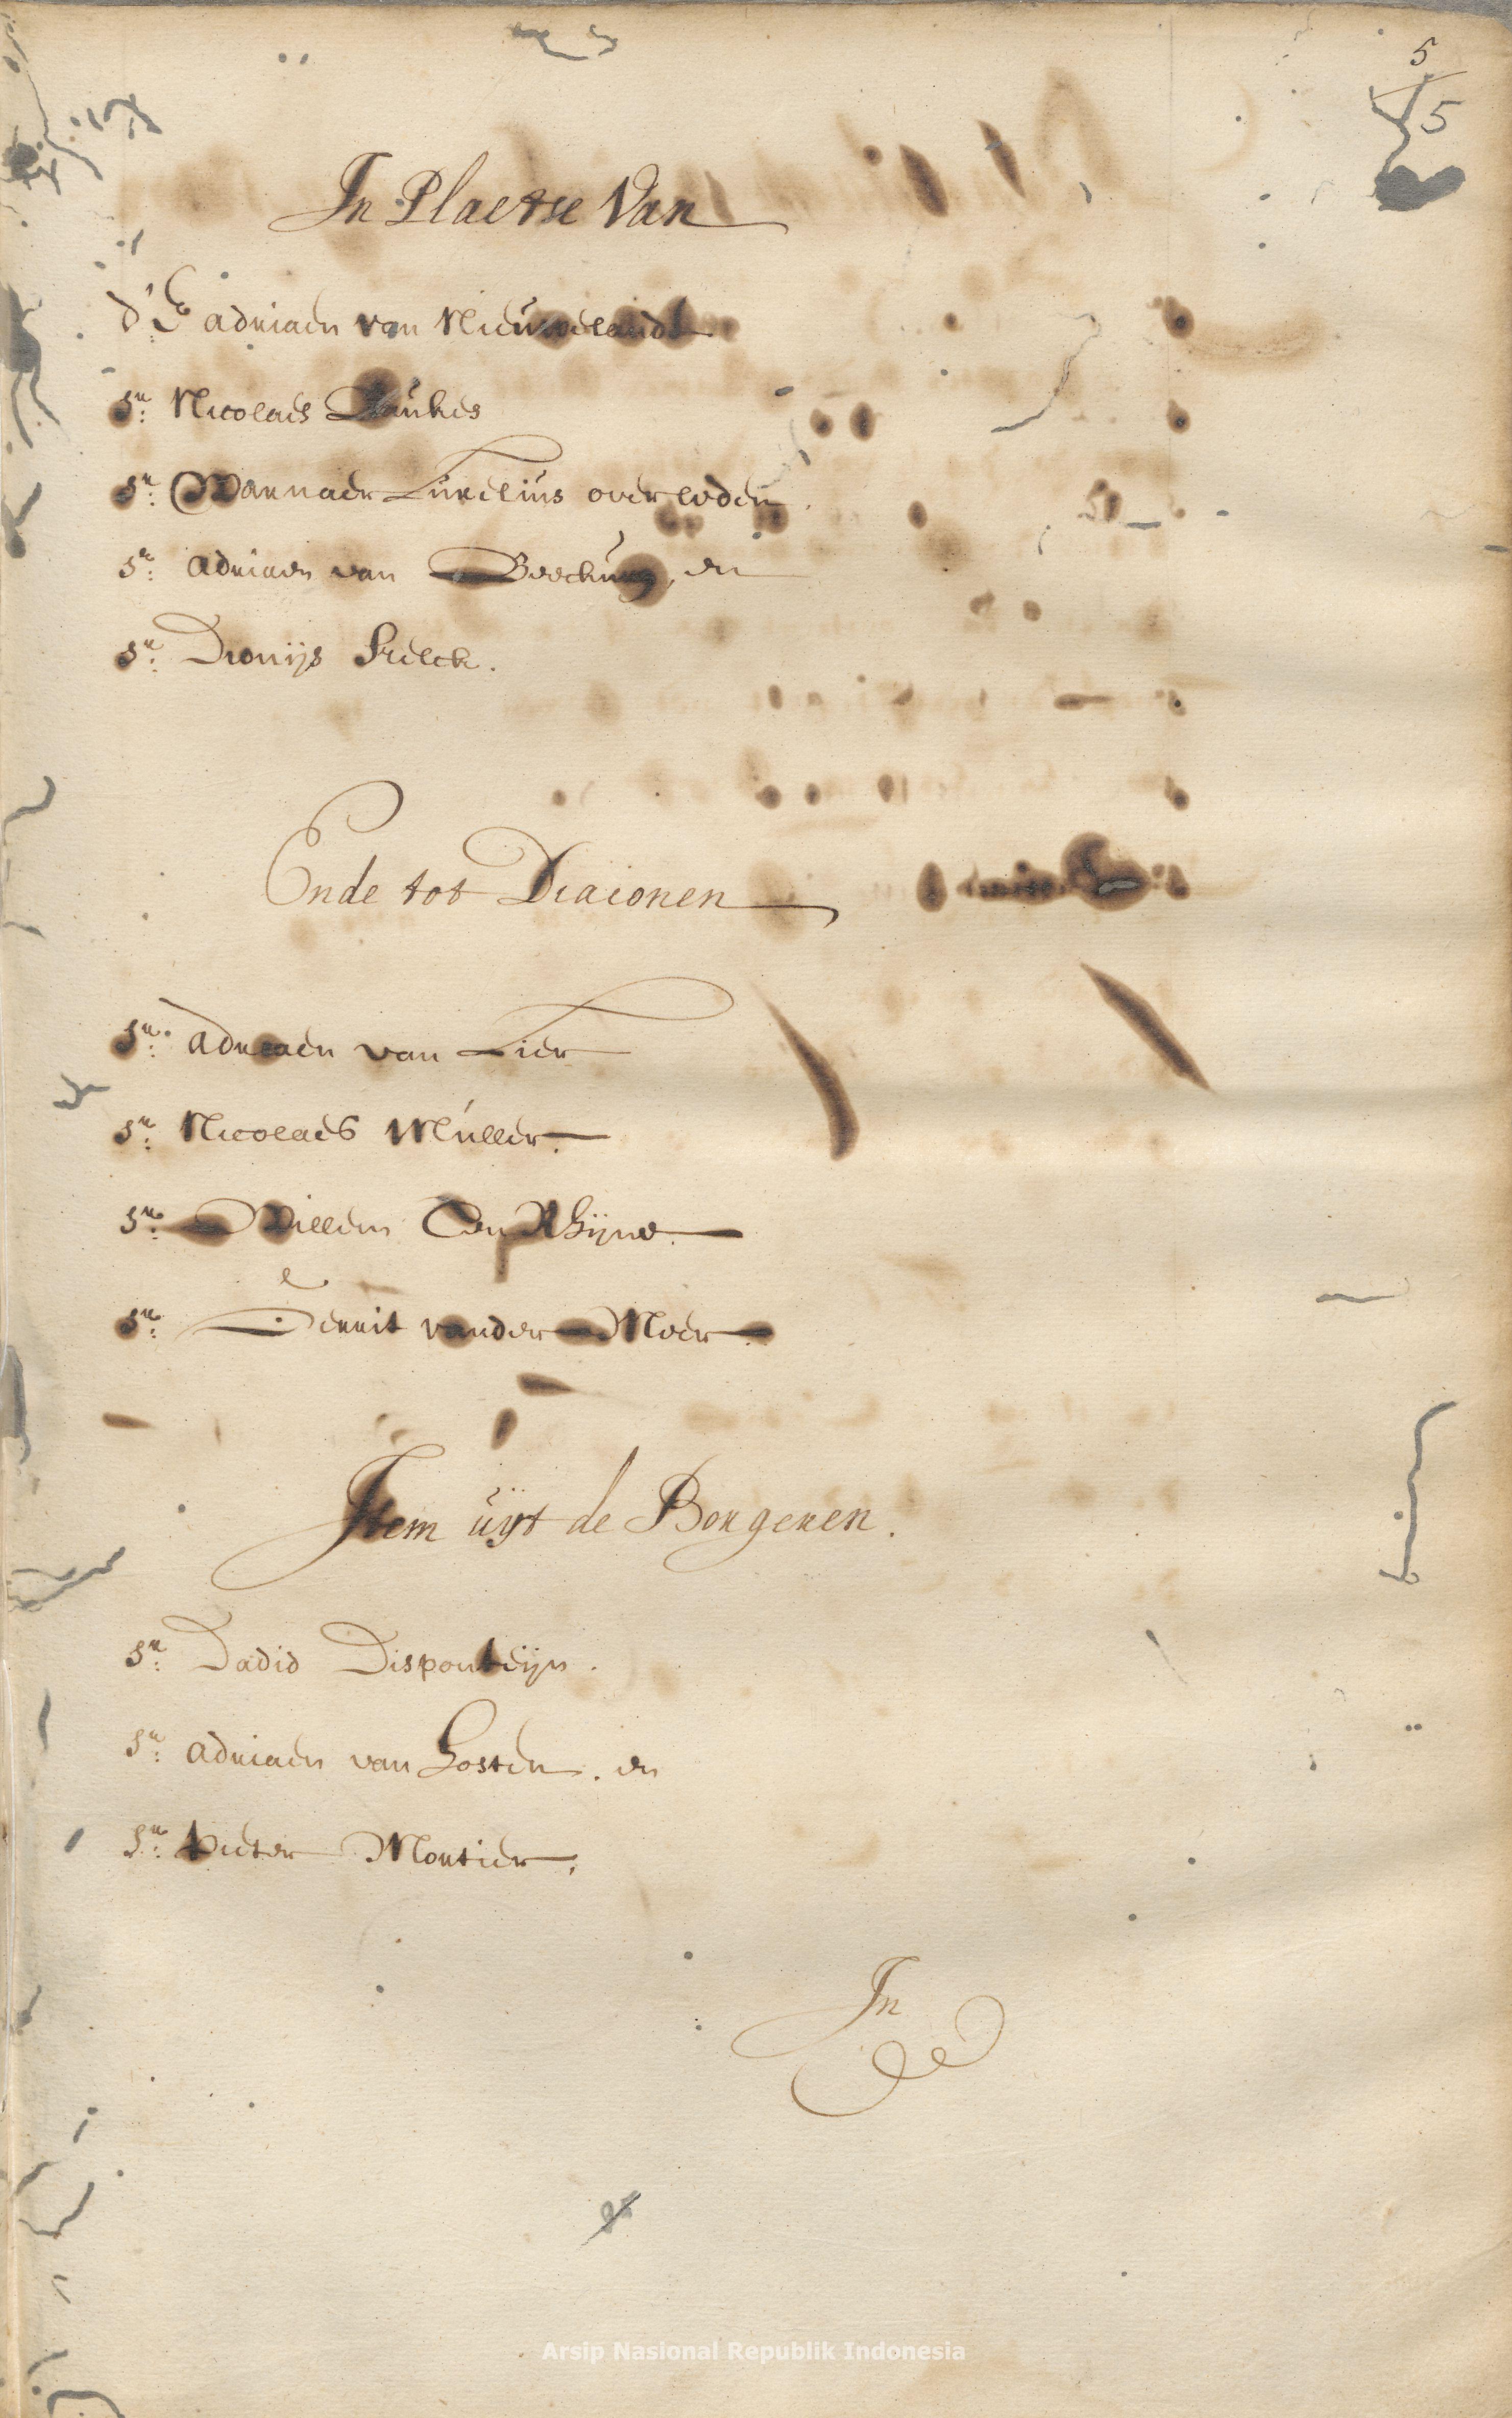 5
5
In Plaetse Van
d' E adriaen van Nieuwelandt
Sr: Nicolaes Baukes
Sr: Warnaer Turelius overleden.
Sr: adriaen van Beeckum, en
Sr: Dionijs Kelck.
Ende tot Diaconen
Sr: adriaen van Lier
Sr: Nicolaes Muller
Sr: Willem Ten Rhijne
Sr: Gerrit vander Meer
Item uijt de Borgeren.
Sr: David Disponteijn.
Sr: adriaen van Hosten. en
Sr: Pieter Montier.
In
Arsip Nasional Republik Indonesia